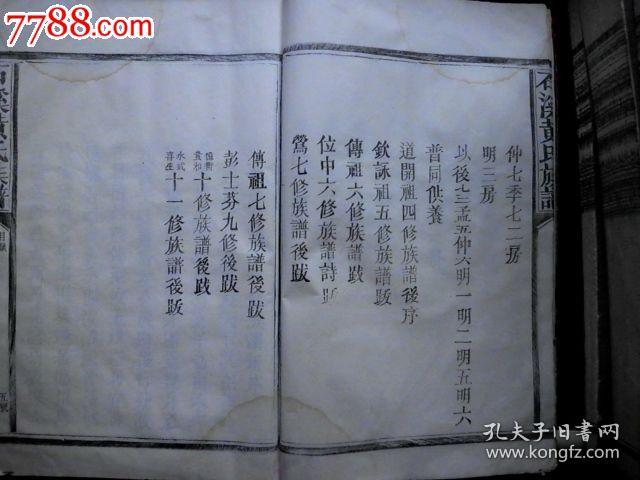 7788.com
仲七季七二房
明三房
以後七三孟五仲六明一明二明五明六
普同供養
道開祖四修族譜後序
欽詠祖五修族譜跋
傳祖六修族譜跋
位中六修族譜詩跋
鶯七修族譜後跋
傳祖七修族譜後跋
彭士芬九修後跋
十修族譜後跋
十一修族譜後跋
石溪黃氏族譜
五號
孔夫子旧书网